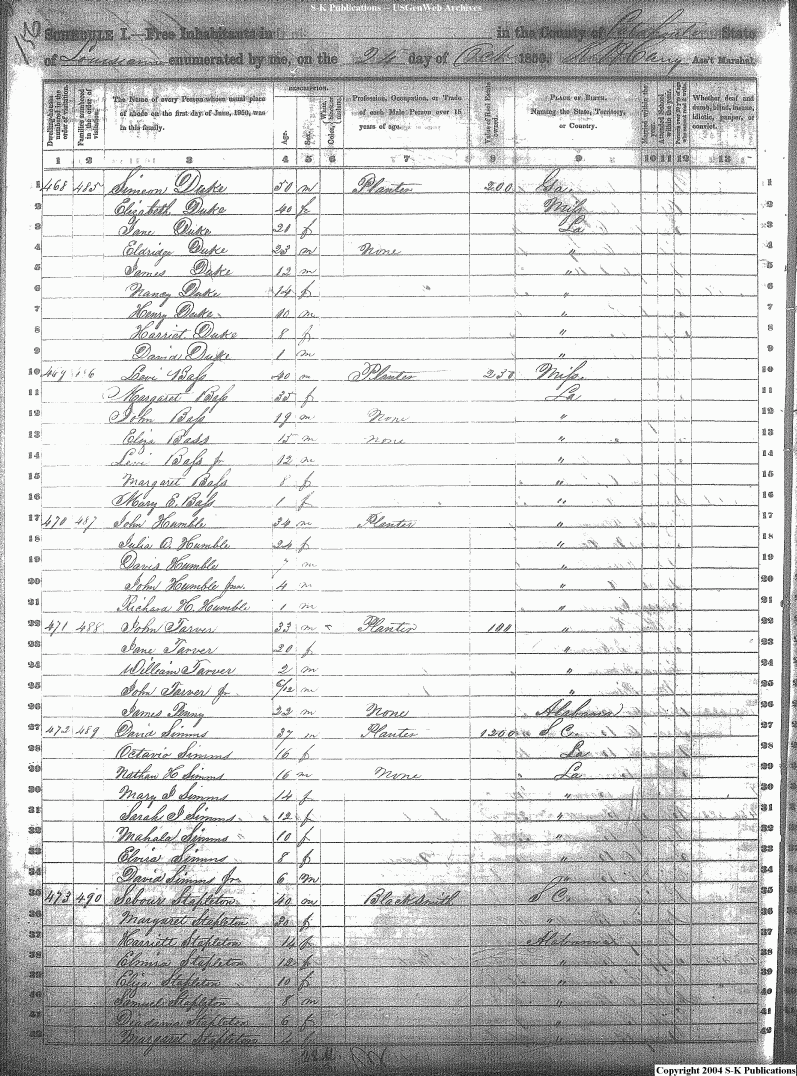 S-K Publications -- USGenWeb Archives
SCHEDULE I.—Free Inhabitants in in the County of State
of Louisiana enumerated by me, on the 24 day of Oct 1850. Ass't Marshal.
Dwelling-houses numbered in the order of visitation.
Families numbered in the order of visitation.
The Name of every Person whose usual place of abode on the first day of June, 1850, was in this family.
DESCRIPTION.
Age.
Sex.
Color, White, black, or mulatto.
Profession, Occupation, or Trade of each Male Person over 15 years of age.
Value of Real Estate owned.
PLACE OF BIRTH. Naming the State, Territory, or Country.
Married within the year.
Attended School within the year.
Whether deaf and dumb, blind, insane, idiotic, pauper, or convict.
1 2 3 4 5 6 7 8 9 10 11 12 13
1 468 485 Simeon Duke 50 m Planter 200 Ga. 1
2 Elizabeth Duke 40 f Miss 2
3 Jane Duke 21 f La 3
4 Eldridge Duke 23 m None " 4
5 James Duke 12 m " 5
6 Nancy Duke 14 f " 6
7 Henry Duke 10 m " 7
8 Harriet Duke 8 f " 8
9 David Duke 1 m " 9
10 469 486 Levi Bass 40 m Planter 250 Miss. 10
11 Margaret Bass 35 f La 11
12 John Bass 19 m None " 12
13 Eliza Bass 15 m None " 13
14 Levi Bass Jr 12 m " 14
15 Margaret Bass 8 f " 15
16 Mary E. Bass 1 f " 16
17 470 487 John Humble 34 m Planter " 17
18 Julia A. Humble 24 f " 18
19 Davis Humble 7 m " 19
20 John Humble Jnr. 4 m " 20
21 Richard H. Humble 1 m " 21
22 471 488 John Tarver 33 m Planter 100 " 22
23 Jane Tarver 20 f " 23
24 William Tarver 2 m " 24
25 John Tarver Jr 6/12 m " 25
26 James 22 m None Alabama 26
27 472 489 David Simms 37 m Planter 1200 S C. 27
28 Octavio Simms 16 f La 28
29 Nathan H Simms 16 m None La 29
30 Mary J Simms 14 f " 30
31 Sarah J Simms 12 f " 31
32 Mahala Simms 10 f " 32
33 Elvira Simms 8 f " 33
34 David Simms Jr. 6 m " 34
35 473 490 Sebour Stapleton 40 m Blacksmith S C. 35
36 Margaret Stapleton f " 36
37 Harriett Stapleton 14 f Alabama 37
38 Elmira Stapleton 12 f " 38
39 Eliza Stapleton 10 f " 39
40 Samuel Stapleton 8 m " 40
41 Diadama Stapleton 6 f " 41
42 Margaret Stapleton f " 42
Copyright 2004 S-K Publications